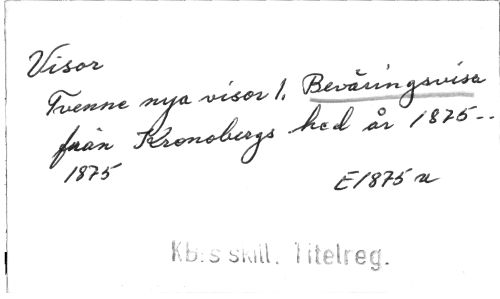 Visor
Tvenne nya visor 1. Beväringsvisa
från Kronobergs hed år 1875--
1875 E1875 u
Kb:s skill. Titelreg.